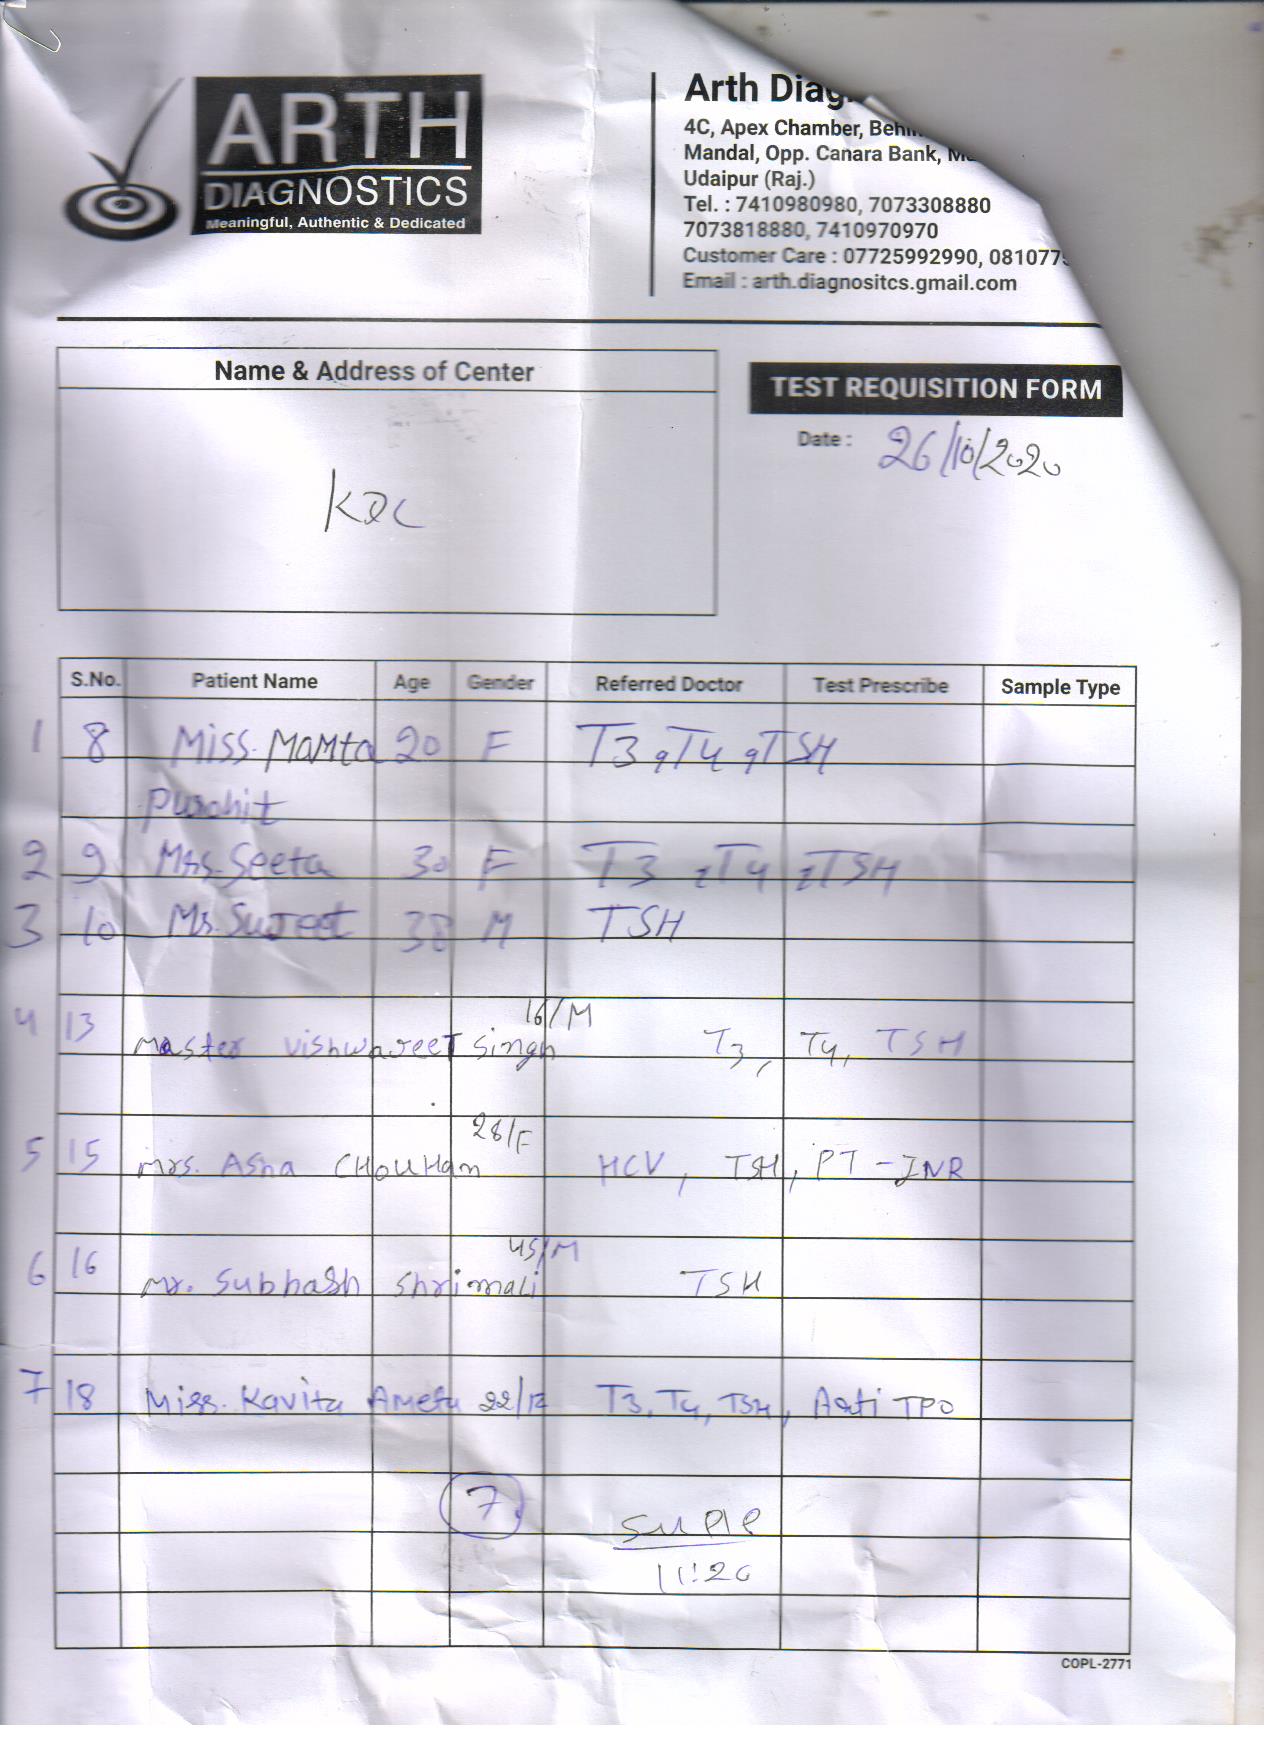 ARTH
DIAGNOSTICS
Meaningful, Authentic & Dedicated
Arth
4C, Apex Chamber,
Mandal, Opp. Canara Bank,
Udaipur (Raj.)
Tel. : 7410980980, 7073308880
7073818880, 7410970970
Customer Care : 07725992990,
Email : arth.diagnositcs.gmail.com
Name & Address of Center
TEST REQUISITION FORM
Date : 26/10/2020
KDC
S.No. Patient Name Age Gender Referred Doctor Test Prescribe Sample Type
1 8 Miss. Mamta 20 F T3, T4, TSH
Purohit
2 9 Mrs. Seeta 30 F T3, T4, TSH
3 10 38 M TSH
16/M
4 13 Master Vishwajeet Singh T3, T4, TSH
28/F
5 15 Mrs. Asha CHOUHan HCV, TSH, PT-INR
45/M
6 16 Mr. Subhash Shrimali TSH
7 18 Miss. Kavita Ameta 22/F T3, T4, TSH, Anti TPO
7
COPL-2771